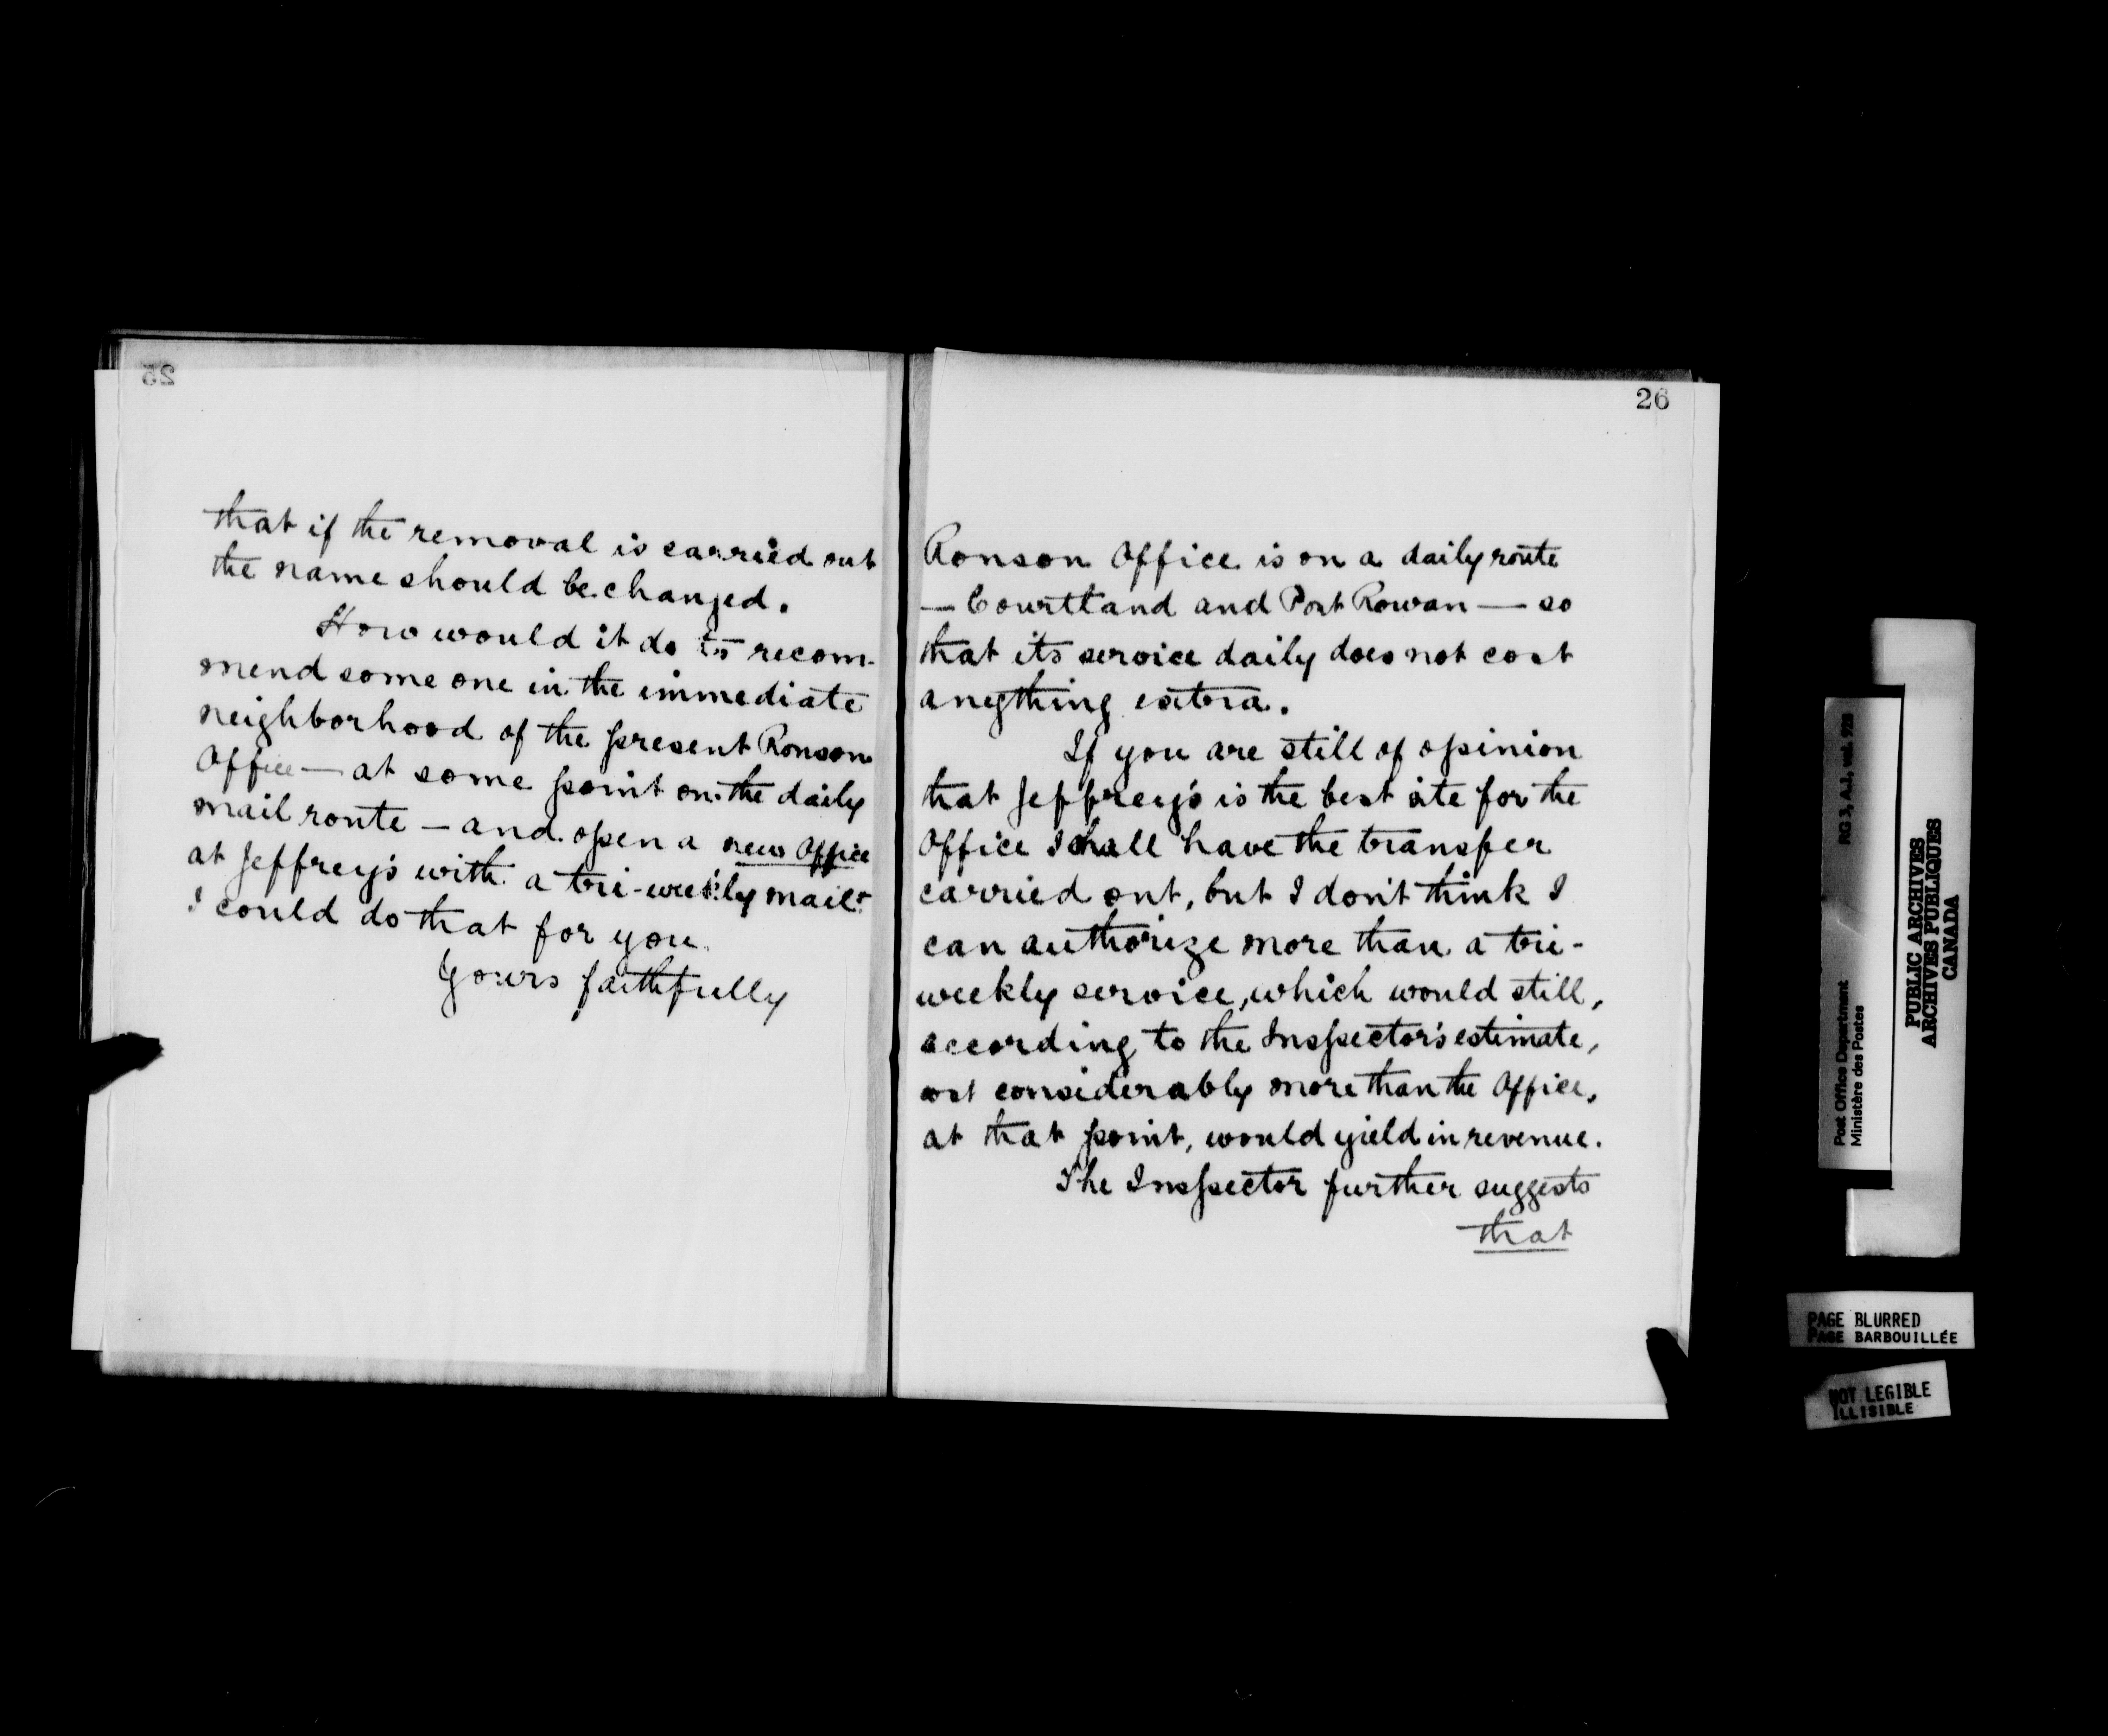 25
that if the removal is carried out
the name should be changed.
How would it do to recom-
mend some one in the immediate
neighborhood of the present Ronson
Office — at some point on the daily
mail route — and open a new Office
at Jeffrey's with a tri-weekly mail?
I could do that for you.
Yours faithfully
26
Ronson Office is on a daily route
— Courtland and Port Rowan — so
that its service daily does not cost
anything extra.
If you are still of opinion
that Jeffrey's is the best site for the
Office I shall have the transfer
carried out, but I don't think I
can authorize more than a tri-
weekly service, which would still,
according to the Inspector's estimate,
cost considerably more than the Office,
at that point, would yield in revenue.
The Inspector further suggests
that
Post Office Department
Ministère des Postes
RG 3, A.J., vol.
PUBLIC ARCHIVES
ARCHIVES PUBLIQUES
CANADA
PAGE BLURRED
PAGE BARBOUILLÉE
NOT LEGIBLE
ILLISIBLE